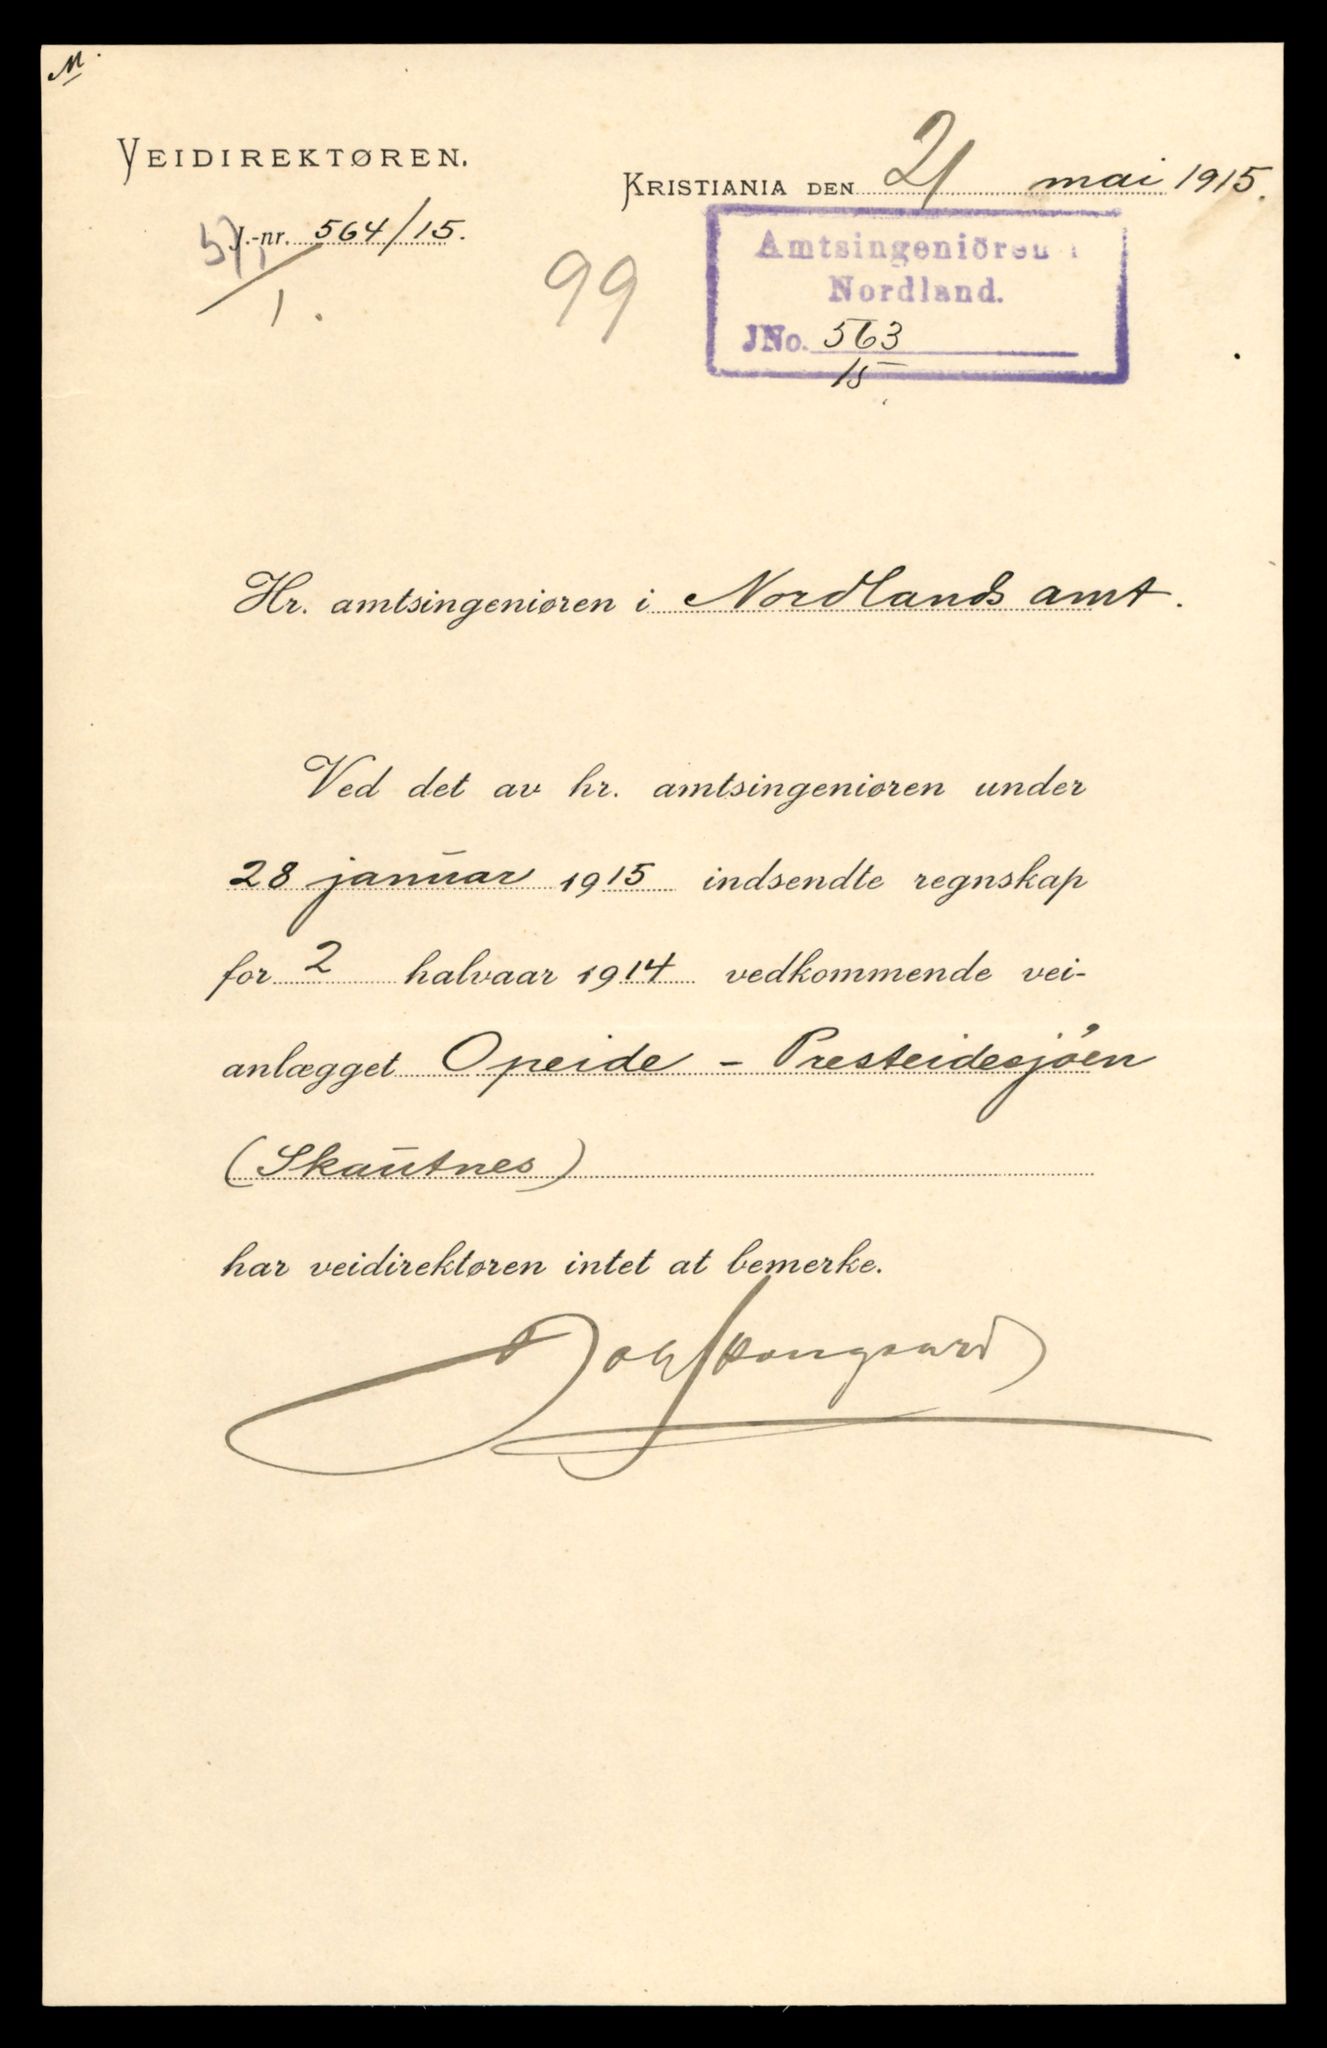 M.
VEIDIREKTØREN.
KRISTIANIA DEN 21 mai 1915.
J.-nr. 564/15.
1.
99
Amtsingeniören i
Nordland.
JNo. 563
15
Hr. amtsingeniøren i Nordlands amt.
Ved det av hr. amtsingeniøren under
28 januar 1915 indsendte regnskap
for 2 halvaar 1914 vedkommende vei-
anlægget Opeide - Presteidesjöen
(Skautnes)
har veidirektøren intet at bemerke.
Joh Skougaard